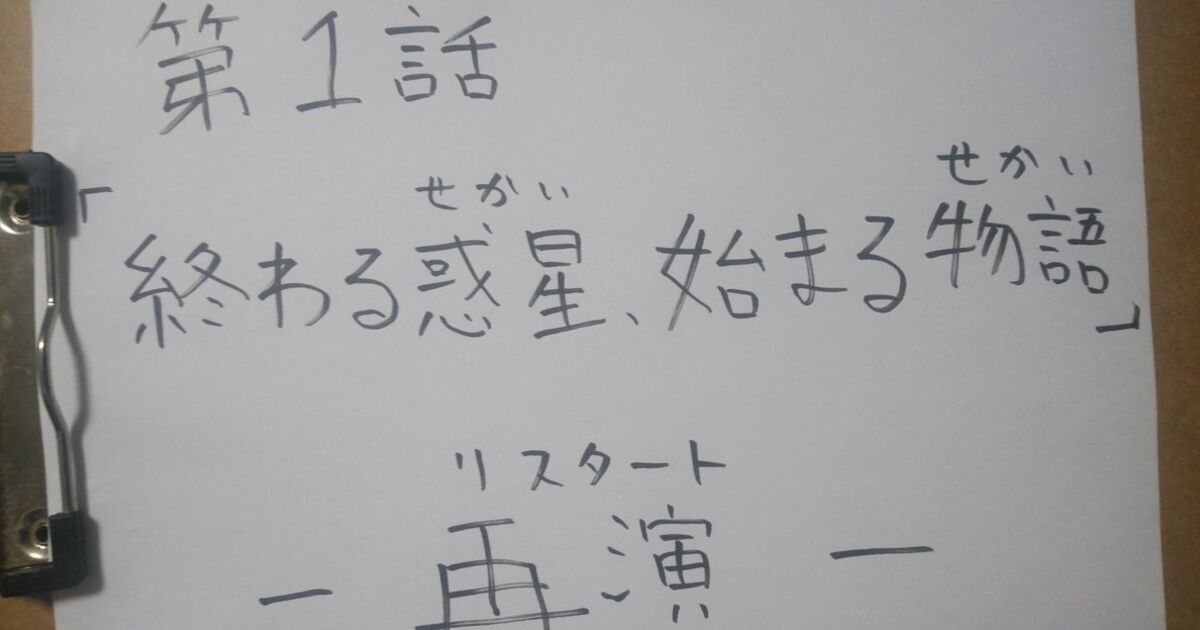 第1話
せかい せかい
「終わる惑星、始まる物語」
リスタート
－ 再演 －